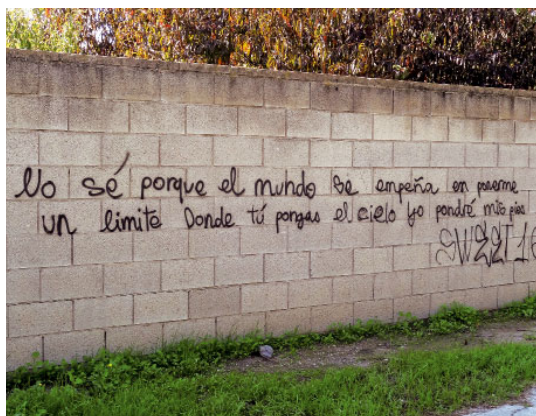 No sé porque el mundo se empeña en ponerme
un limite Donde tú pongas el cielo yo pondré mis pies
SWEET 16